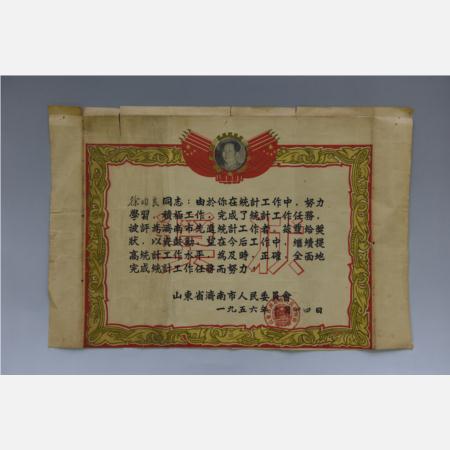 徐昭良同志：由於你在統計工作中，努力
學習，積極工作，完成了統計工作任務，
被評為濟南市先進統計工作者，茲發給獎
狀，以資鼓勵，望在今后工作中，繼續提
高統計工作水平，為及時，正確，全面地
完成統計工作任務而努力。
山東省濟南市人民委員會
一九五六年 月 四日